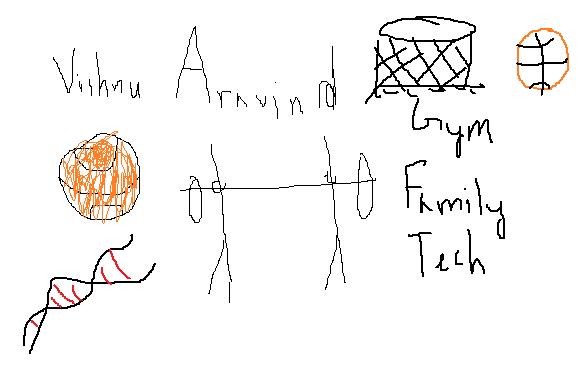 Vishnu Aravind
Gym
Family
Tech